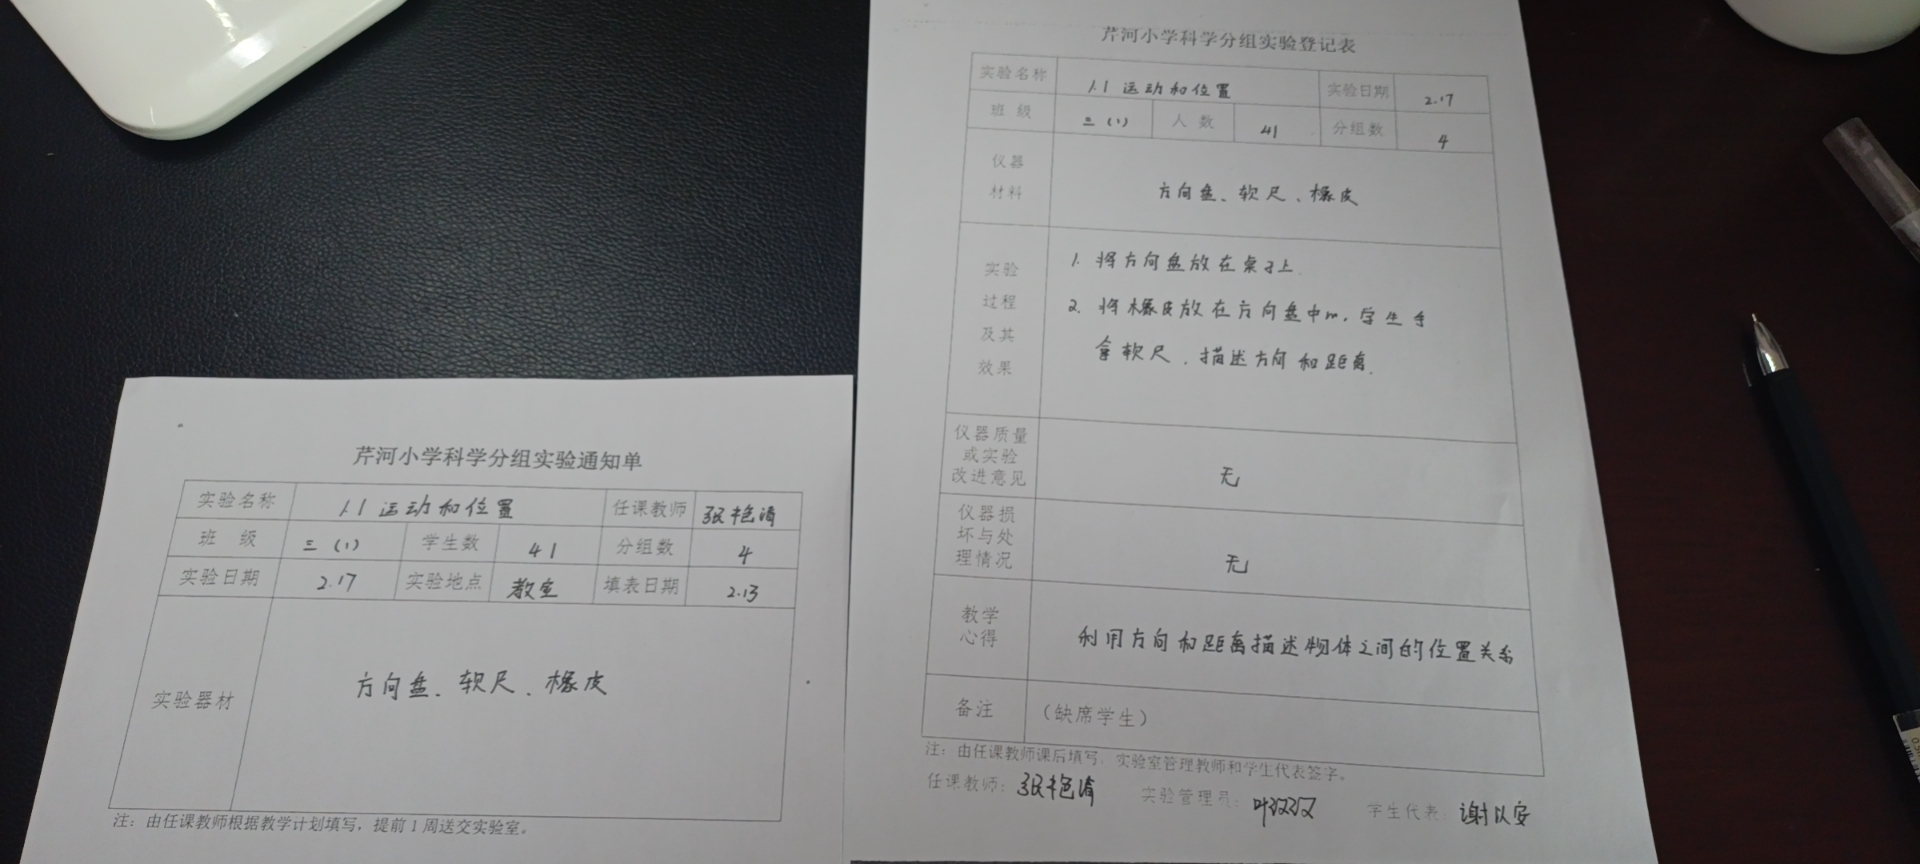 芹河小学科学分组实验通知单
实验名称 1.1 运动和位置 任课教师 张艳清
班 级 三(1) 学生数 41 分组数 4
实验日期 2.17 实验地点 教室 填表日期 2.13
实验器材 方向盘、软尺、橡皮
注：由任课教师根据教学计划填写，提前1周送交实验室。
芹河小学科学分组实验登记表
实验名称 1.1 运动和位置 实验日期 2.17
班 级 三(1) 人 数 41 分组数 4
仪器
材料
方向盘、软尺、橡皮
实验
过程
及其
效果
1. 将方向盘放在桌子上.
2. 将橡皮放在方向盘中间,学生手
拿软尺,描述方向和距离.
仪器质量
或实验
改进意见
无
仪器损
坏与处
理情况
无
教学
心得
利用方向和距离描述物体之间的位置关系
备注 （缺席学生）
注：由任课教师课后填写，实验室管理教师和学生代表签字。
任课教师：张艳清 实验管理员：叶双双 学生代表：谢以安